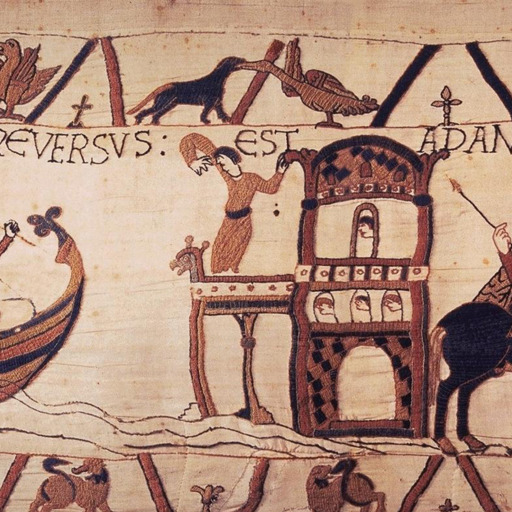 REVERSVS: EST ADAN